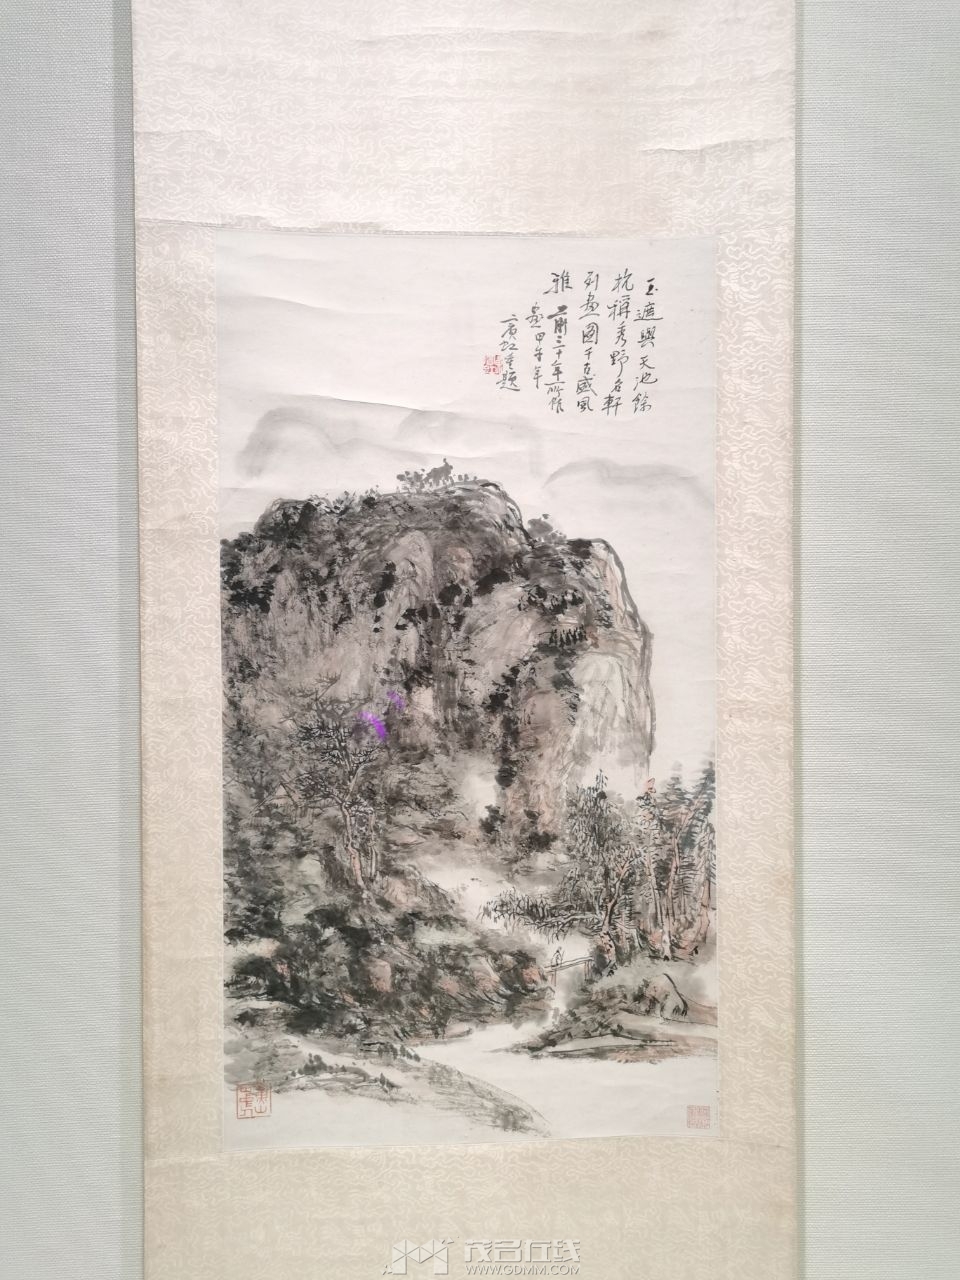 玉遮與天池餘
杭稱秀野名軒
列畫圖千古盛風
雅
三十年所作
畫甲午年
賓虹重題
茂名在线
WWW.GDMM.COM